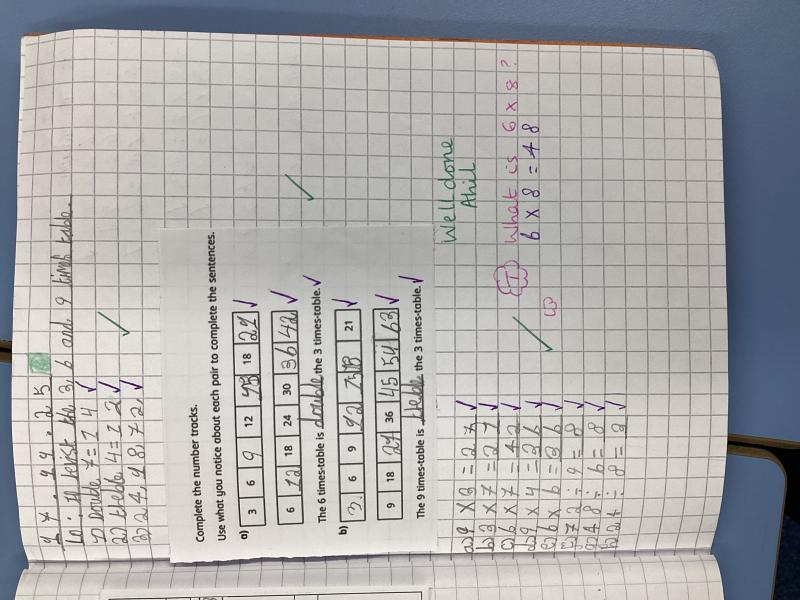 17.11.25
LO: To revist the 3, 6 and 9 timb table.
1) Double 7 = 14
2) treble 4 = 12
3) 24, 48, 72,
Complete the number tracks.
Use what you notice about each pair to complete the sentences.
a) 3 6 9 12 15 18 21
6 12 18 24 30 36 42
The 6 times-table is double the 3 times-table.
b) 3 6 9 12 15 18 21
9 18 27 36 45 54 63
The 9 times-table is treble the 3 times-table.
Well done
Ahil
a) 9 x 3 = 27
b) 3 x 7 = 21
c) 6 x 7 = 42
d) 9 x 4 = 36
e) 6 x 6 = 36
f) 72 ÷ 9 = 8
g) 48 ÷ 6 = 8
h) 24 ÷ 8 = 3
I What is 6 x 8?
6 x 8 = 48